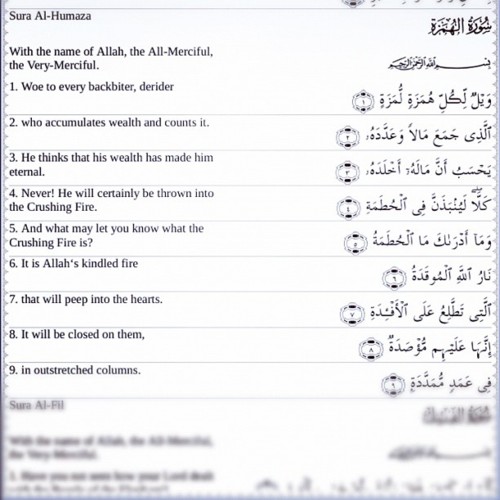 Sura Al-Humaza
سُورَةُ الْهُمَزَةِ
With the name of Allah, the All-Merciful,
the Very-Merciful.
بِسْمِ اللَّهِ الرَّحْمَٰنِ الرَّحِيمِ
1. Woe to every backbiter, derider
وَيْلٌ لِّكُلِّ هُمَزَةٍ لُّمَزَةٍ ١
2. who accumulates wealth and counts it.
ٱلَّذِى جَمَعَ مَالًا وَعَدَّدَهُۥ ٢
3. He thinks that his wealth has made him
eternal.
يَحْسَبُ أَنَّ مَالَهُۥٓ أَخْلَدَهُۥ ٣
4. Never! He will certainly be thrown into
the Crushing Fire.
كَلَّاۖ لَيُنۢبَذَنَّ فِى ٱلْحُطَمَةِ ٤
5. And what may let you know what the
Crushing Fire is?
وَمَآ أَدْرَىٰكَ مَا ٱلْحُطَمَةُ ٥
6. It is Allah's kindled fire
نَارُ ٱللَّهِ ٱلْمُوقَدَةُ ٦
7. that will peep into the hearts.
ٱلَّتِى تَطَّلِعُ عَلَى ٱلْأَفْـِٔدَةِ ٧
8. It will be closed on them,
إِنَّهَا عَلَيْهِم مُّؤْصَدَةٌ ٨
9. in outstretched columns.
فِى عَمَدٍ مُّمَدَّدَةٍۭ ٩
Sura Al-Fil
With the name of Allah, the All-Merciful,
the Very-Merciful.
1. Have you not seen how your Lord dealt